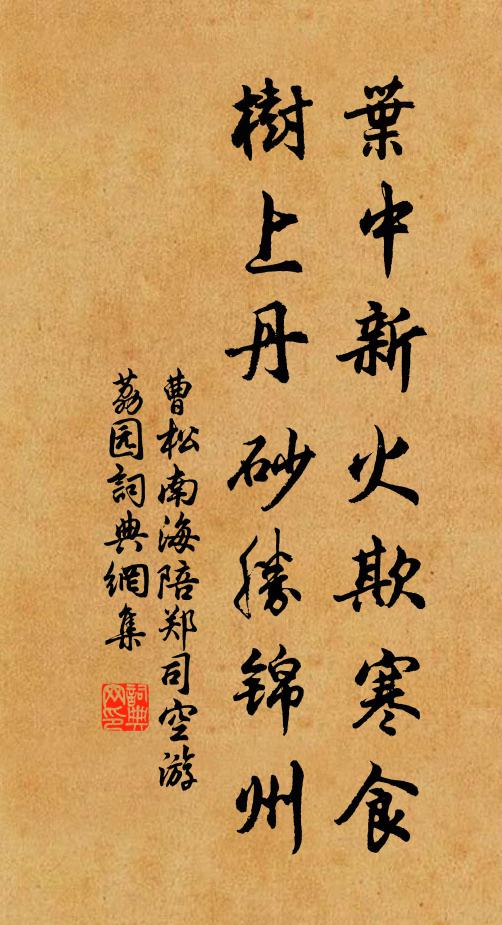 葉中新火欺寒食
樹上丹砂勝锦州
曹松南海陪郑司空游
荔园詞典網集
詞典
网印